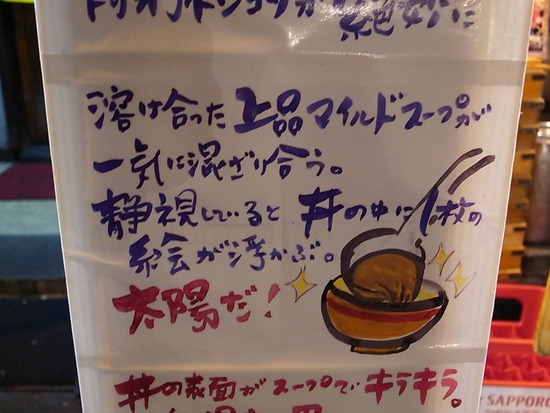 絶妙に
溶け合った上品マイルドスープが
一気に混ざり合う。
静視していると丼の中に1枚の
絵が浮かぶ。
太陽だ!
丼の表面がスープでキラキラ。
SAPPORO